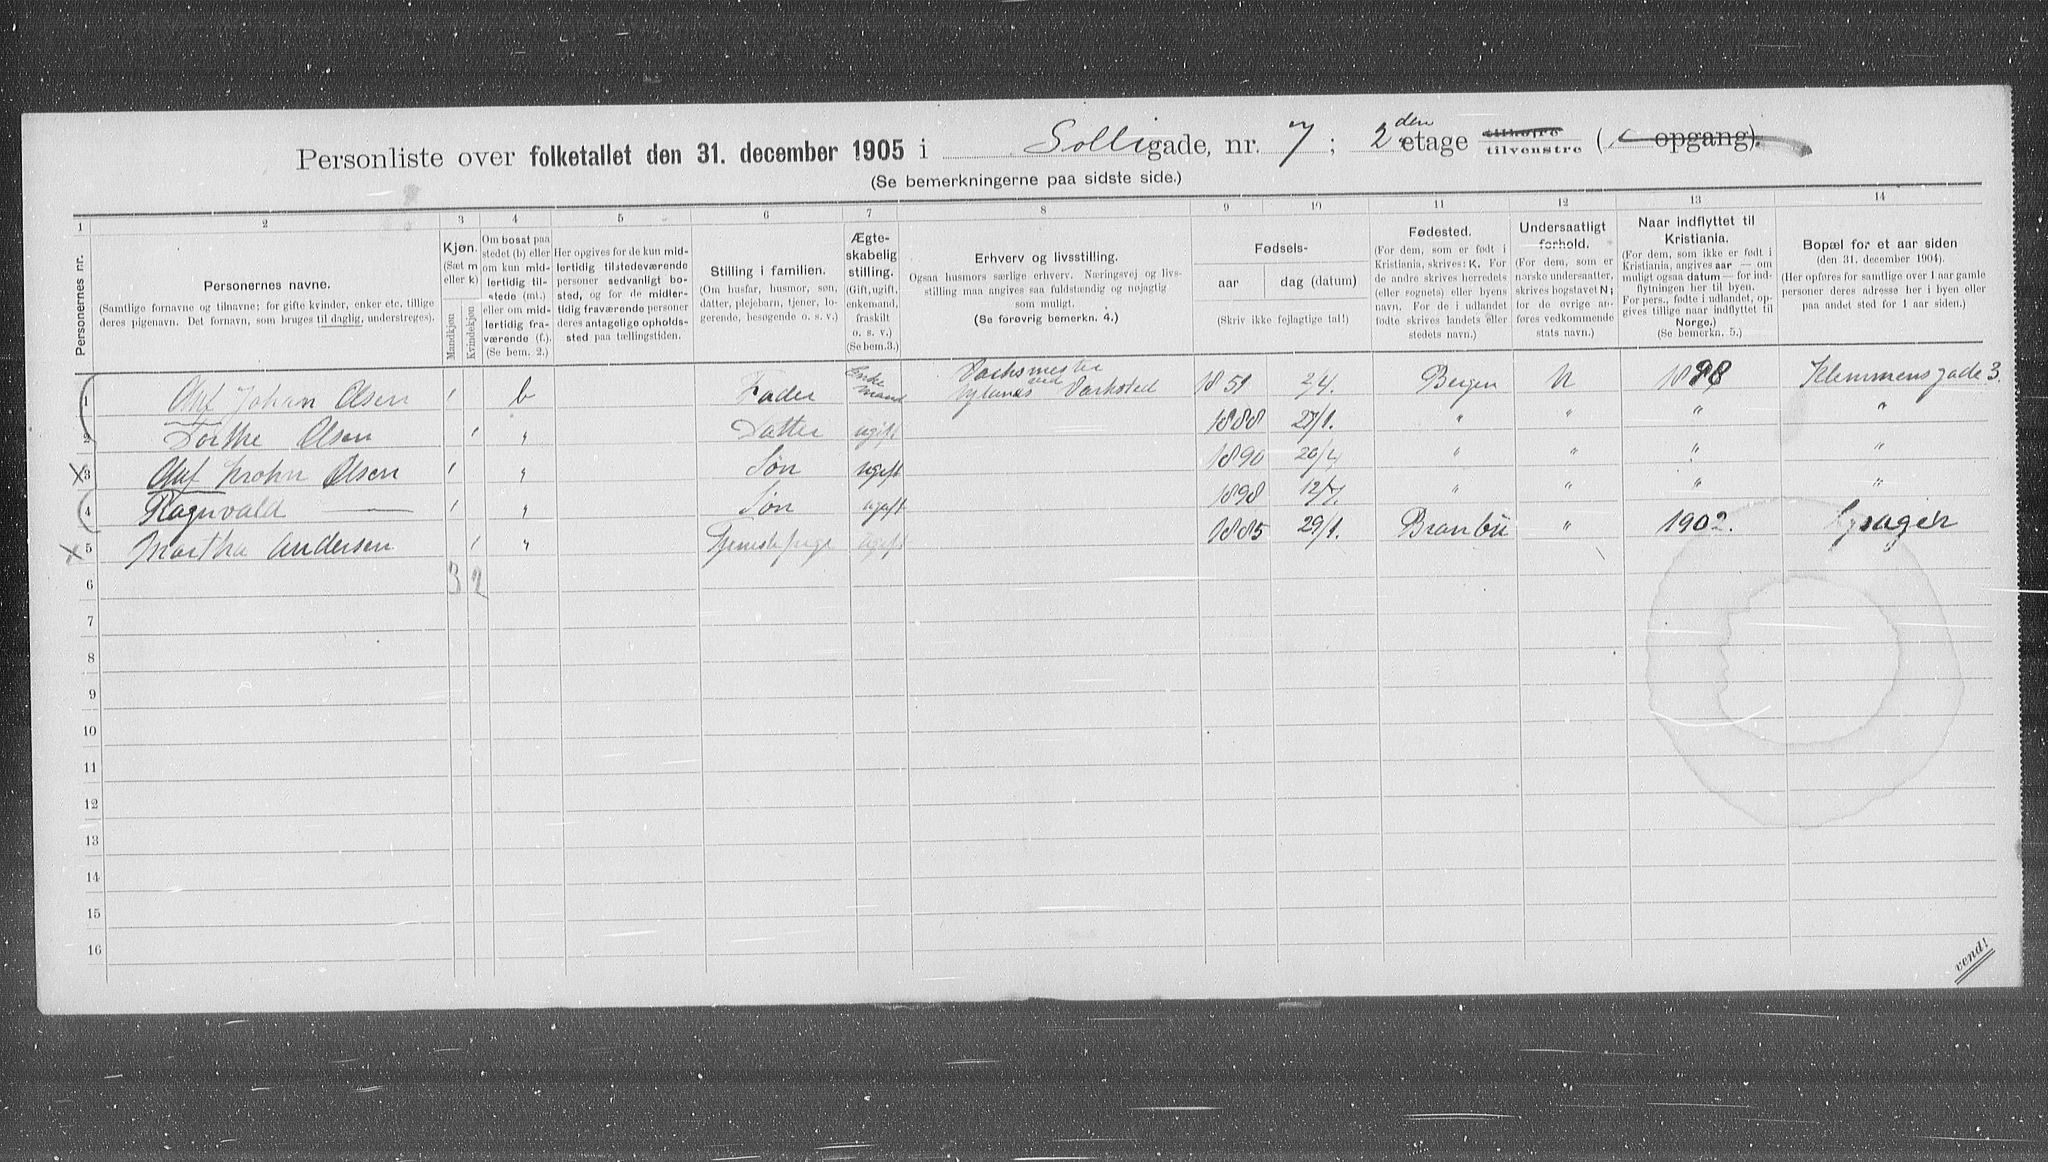 Personliste over folketallet den 31. december 1905 i Solligade, nr. 7; 2den etage tilhøjre tilvenstre ( opgang).
(Se bemerkningerne paa sidste side.)
1 2 3 4 5 6 7 8 9 10 11 12 13 14
Personernes nr.
Personernes navne.
(Samtlige fornavne og tilnavne; for gifte kvinder, enker etc. tillige deres pigenavn. Det fornavn, som bruges til daglig, understreges).
Kjøn.
(Sæt m eller k)
Mandkjøn
Kvindekjøn
Om bosat paa stedet (b) eller om kun midlertidig tilstede (mt.) eller om midlertidig fraværende (f.). (Se bem. 2.)
Her opgives for de kun midlertidig tilstedeværende personer sedvanligt bosted, og for de midlertidig fraværende personer deres antagelige opholdssted paa tællingstiden.
Stilling i familien.
(Om husfar, husmor, søn, datter, plejebarn, tjener, logerende, besøgende o. s. v.)
Ægteskabelig stilling.
(Gift, ugift, enkemand, fraskilt o. s. v.)
(Se bem.3.)
Erhverv og livsstilling.
Ogsaa husmors særlige erhverv. Næringsvej og livsstilling maa angives saa fuldstændig og nøjagtig som muligt.
(Se forøvrig bemerkn. 4.)
Fødsels-
aar
dag (datum)
(Skriv ikke fejlagtige tal!)
Fødested.
(For dem, som er født i Kristiania, skrives: K. For de andre skrives herredets (eller sognets) eller byens navn. For de i udlandet fødte skrives landets eller stedets navn.)
Undersaatligt forhold.
(For dem, som er norske undersaatter, skrives bogstavet N; for de øvrige anføres vedkommende stats navn.)
Naar indflyttet til Kristiania.
(For dem, som ikke er født i Kristiania, angives aar — om muligt ogsaa datum — for indflytningen her til byen. For pers., fødte i udlandet, opgives tillige naar indflyttet til Norge.)
(Se bemerkn. 5.)
Bopæl for et aar siden
(den 31. december 1904).
(Her opføres for samtlige over 1 aar gamle personer deres adresse her i byen eller paa andet sted for 1 aar siden.)
1 Olaf Johan Olsen 1 b Fader Enkemand ved Værksted 1851 2/4. Bergen N 1898 Klemmensgade 3.
2 Dorthe Olsen 1 " Datter ugift 1888 27/1. " " " "
3 Olaf Krohn Olsen 1 " Søn ugift 1890 20/4 " " " "
4 Ragnvald — 1 " Søn ugift 1898 12/7. " " " "
5 Martha Andersen 1 " Tjenestepige ugift 1885 29/1. Branbu " 1902.
6 3 2
7
8
9
10
11
12
13
14
15
16
vend!